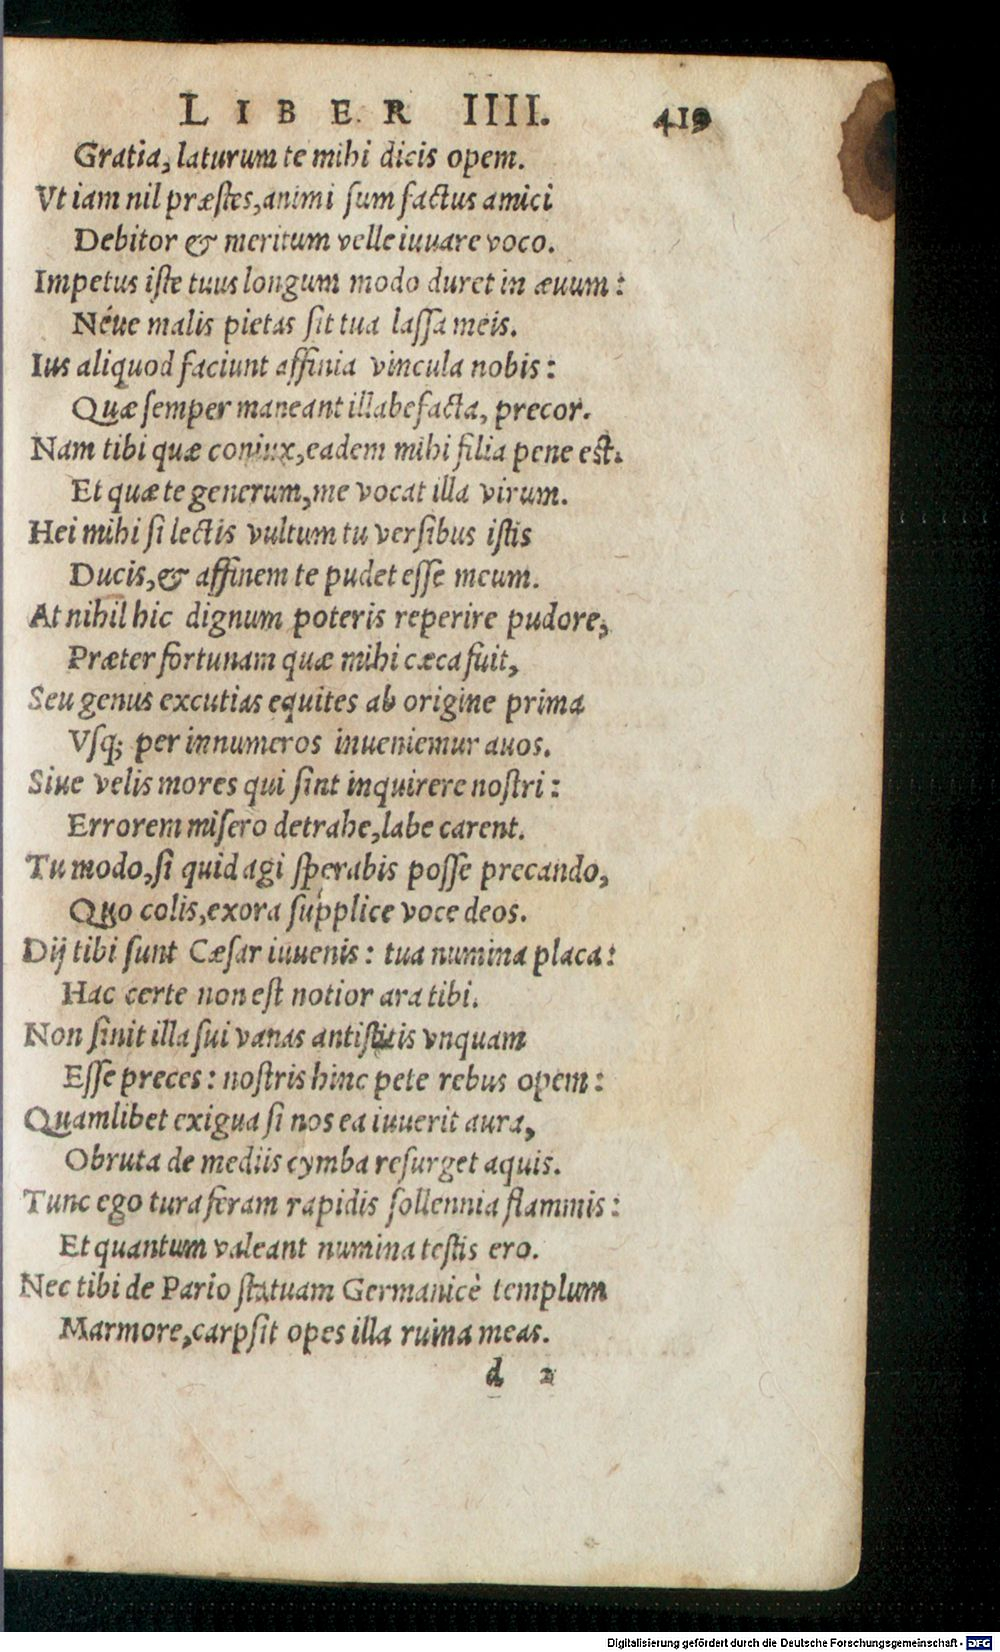 LIBER IIII. 419
Gratia, laturum te mihi dicis opem.
Vt iam nil præstes, animi sum factus amici
Debitor & meritum velle iuuare voco.
Impetus iste tuus longum modo duret in æuum:
Néue malis pietas sit tua lassa meis.
Ius aliquod faciunt affinia vincula nobis:
Quæ semper maneant illabefacta, precor.
Nam tibi quæ coniux, eadem mihi filia pene est.
Et quæ te generum, me vocat illa virum.
Hei mihi si lectis vultum tu versibus istis
Ducis, & affinem te pudet esse meum.
At nihil hic dignum poteris reperire pudore,
Præter fortunam quæ mihi cæca fuit,
Seu genus excutias equites ab origine prima
Vsq; per innumeros inueniemur auos.
Siue velis mores qui sint inquirere nostri:
Errorem misero detrahe, labe carent.
Tu modo, si quid agi sperabis posse precando,
Quo colis, exora supplice voce deos.
Dij tibi sunt Cæsar iuuenis: tua numina placa:
Hac certe non est notior ara tibi.
Non sinit illa sui vanas antistitis vnquam
Esse preces: nostris hinc pete rebus opem:
Quamlibet exigua si nos ea iuuerit aura,
Obruta de mediis cymba resurget aquis.
Tunc ego tura feram rapidis sollennia flammis:
Et quantum valeant numina testis ero.
Nec tibi de Pario statuam Germanicè templum
Marmore, carpsit opes illa ruina meas.
d 2
Digitalisierung gefördert durch die Deutsche Forschungsgemeinschaft - DFG